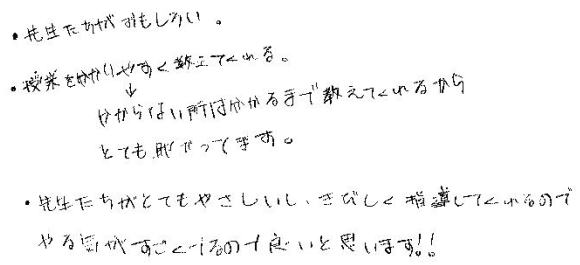 ・先生たちがおもしろい。
・授業を分かりやすく教えてくれる。
↓
分からない所は分かるまで教えてくれるから
とても助かってます。
・先生たちがとてもやさしいし、きびしく指導してくれるので
やる気がすごくでるので良いと思います!!